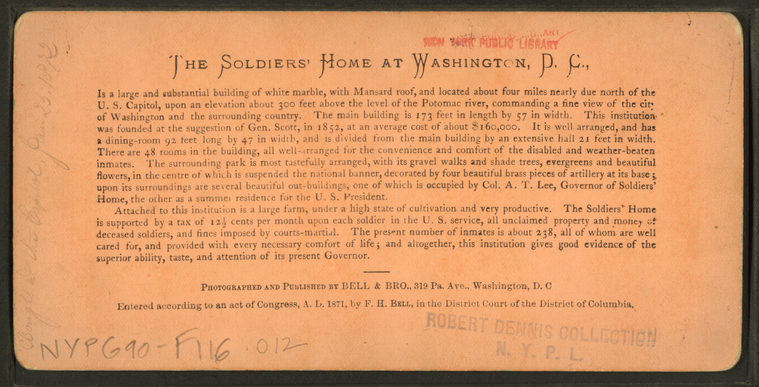 NEW YORK PUBLIC LIBRARY
THE SOLDIERS' HOME AT WASHINGTON, D. C.,
Is a large and substantial building of white marble, with Mansard roof, and located about four miles nearly due north of the
U. S. Capitol, upon an elevation about 300 feet above the level of the Potomac river, commanding a fine view of the city
of Washington and the surrounding country. The main building is 173 feet in length by 57 in width. This institution
was founded at the suggestion of Gen. Scott, in 1852, at an average cost of about $160,000. It is well arranged, and has
a dining-room 92 feet long by 47 in width, and is divided from the main building by an extensive hall 21 feet in width.
There are 48 rooms in the building, all well-arranged for the convenience and comfort of the disabled and weather-beaten
inmates. The surrounding park is most tastefully arranged, with its gravel walks and shade trees, evergreens and beautiful
flowers, in the centre of which is suspended the national banner, decorated by four beautiful brass pieces of artillery at its base;
upon its surroundings are several beautiful out-buildings, one of which is occupied by Col. A. T. Lee, Governor of Soldiers'
Home, the other as a summer residence for the U. S. President.
Attached to this institution is a large farm, under a high state of cultivation and very productive. The Soldiers' Home
is supported by a tax of 12½ cents per month upon each soldier in the U. S. service, all unclaimed property and money of
deceased soldiers, and fines imposed by courts-martial. The present number of inmates is about 238, all of whom are well
cared for, and provided with every necessary comfort of life; and altogether, this institution gives good evidence of the
superior ability, taste, and attention of its present Governor.
PHOTOGRAPHED AND PUBLISHED BY BELL & BRO., 319 PA. AVE., WASHINGTON, D. C
Entered according to an act of Congress, A. D. 1871, by F. H. BELL, in the District Court of the District of Columbia.
ROBERT DENNIS COLLECTION
N. Y. P. L.
NYPG90-F116 .012